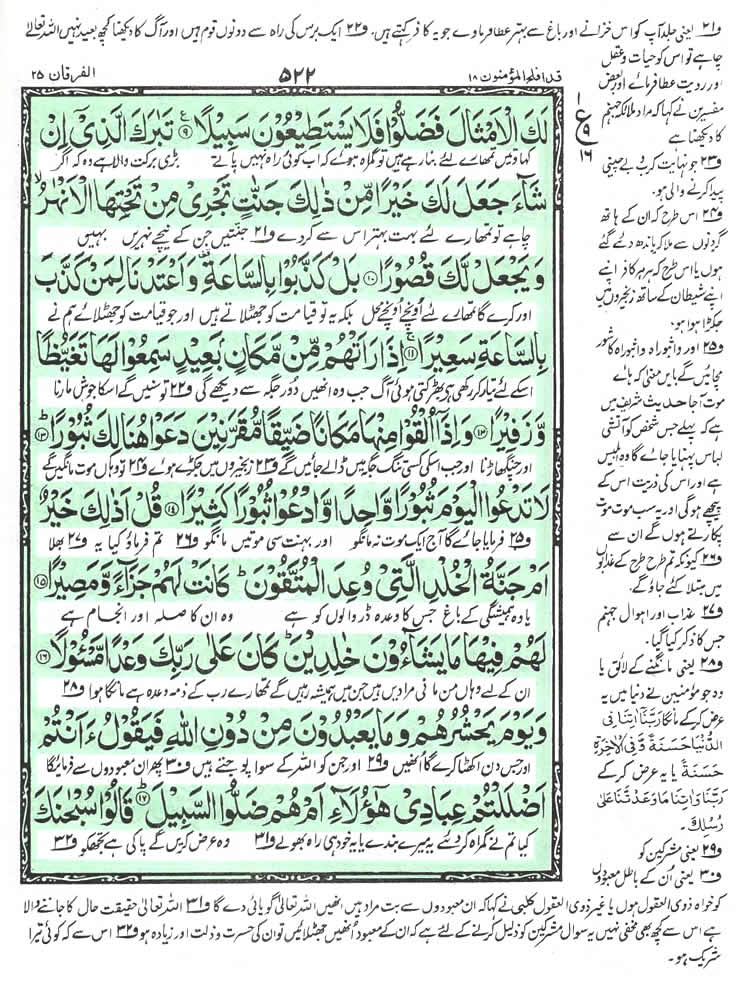 و۲۱ یعنی جلد آپ کو اس خزانے اور باغ سے بہتر عطا فرماوے جو یہ کافر کہتے ہیں۔ و۲۲ ایک برس کی راہ سے یا سو برس کی راہ سے دونوں قول ہیں اور آگ کا دیکھنا کچھ بعید نہیں اللہ تعالیٰ
الفرقان ۲۵
۵۲۲
قد افلح المؤمنون ۱۸
لَكَ الْاَمْثَالَ فَضَلُّوْا فَلَا يَسْتَطِيْعُوْنَ سَبِيْلًا ۹ تَبٰرَكَ الَّذِيْٓ اِنْ
کہاوتیں تمہارے لئے بنا رہے ہیں تو گمراہ ہوئے کہ اب کوئی راہ نہیں پاتے بڑی برکت والا ہے وہ کہ اگر
شَآءَ جَعَلَ لَكَ خَيْرًا مِّنْ ذٰلِكَ جَنّٰتٍ تَجْرِيْ مِنْ تَحْتِهَا الْاَنْهٰرُ
چاہے تو تمہارے لئے بہت بہتر اس سے کردے و۲۱ جنتیں جن کے نیچے نہریں بہیں
وَيَجْعَلْ لَّكَ قُصُوْرًا ۱۰ بَلْ كَذَّبُوْا بِالسَّاعَةِ وَاَعْتَدْنَا لِمَنْ كَذَّبَ
اور کرے گا تمہارے لئے اونچے اونچے محل بلکہ یہ تو قیامت کو جھٹلاتے ہیں اور جو قیامت کو جھٹلائے ہم نے
بِالسَّاعَةِ سَعِيْرًا ۱۱ اِذَا رَاَتْهُمْ مِّنْ مَّكَانٍۢ بَعِيْدٍ سَمِعُوْا لَهَا تَغَيُّظًا
اسکے لئے تیار کر رکھی ہے بھڑکتی ہوئی آگ جب وہ انھیں دور جگہ سے دیکھے گی و۲۲ تو سنیں گے اسکا جوش مارنا
وَّزَفِيْرًا ۱۲ وَاِذَآ اُلْقُوْا مِنْهَا مَكَانًا ضَيِّقًا مُّقَرَّنِيْنَ دَعَوْا هُنَالِكَ ثُبُوْرًا ۱۳
اور چنگھاڑنا اور جب اسکی کسی تنگ جگہ میں ڈالے جائیں گے و۲۳ زنجیروں میں جکڑے ہوئے و۲۴ تو وہاں موت مانگیں گے
لَا تَدْعُوا الْيَوْمَ ثُبُوْرًا وَّاحِدًا وَّادْعُوْا ثُبُوْرًا كَثِيْرًا ۱۴ قُلْ اَذٰلِكَ خَيْرٌ
و۲۵ فرمایا جائے گا آج ایک موت نہ مانگو اور بہت سی موتیں مانگو و۲۶ تم فرماؤ کیا یہ و۲۷ بھلا
اَمْ جَنَّةُ الْخُلْدِ الَّتِيْ وُعِدَ الْمُتَّقُوْنَ كَانَتْ لَهُمْ جَزَآءً وَّمَصِيْرًا ۱۵
یا وہ ہمیشگی کے باغ جس کا وعدہ ڈر والوں کو ہے وہ ان کا صلہ اور انجام ہے
لَهُمْ فِيْهَا مَا يَشَآءُوْنَ خٰلِدِيْنَ كَانَ عَلٰى رَبِّكَ وَعْدًا مَّسْـُٔوْلًا ۱۶
ان کے لیے وہاں من مانی مرادیں ہیں جن میں ہمیشہ رہیں گے تمہارے رب کے ذمہ وعدہ ہے مانگا ہوا و۲۸
وَيَوْمَ يَحْشُرُهُمْ وَمَا يَعْبُدُوْنَ مِنْ دُوْنِ اللّٰهِ فَيَقُوْلُ ءَاَنْتُمْ
اور جس دن اکٹھا کرے گا انھیں و۲۹ اور جن کو اللہ کے سوا پوجتے ہیں و۳۰ پھر ان معبودوں سے فرمائیگا
اَضْلَلْتُمْ عِبَادِيْ هٰٓؤُلَآءِ اَمْ هُمْ ضَلُّوا السَّبِيْلَ ۱۷ قَالُوْا سُبْحٰنَكَ
کیا تم نے گمراہ کردئے یہ میرے بندے یا یہ خود ہی راہ بھولے و۳۱ وہ عرض کریں گے پاکی ہے تجھکو و۳۲
۱
ع
۹
۱۶
چاہے تو اس کو حیات و عقل
اور رویت عطا فرمائے اور بعض
مفسرین نے کہا کہ مراد ملائکہ جہنم
کا دیکھنا ہے
و۲۳ جو نہایت کرب و بے چینی
پیدا کرنے والی ہو۔
و۲۴ اس طرح کہ ان کے ہاتھ
گردنوں سے ملا کر باندھ دئے گئے
ہوں یا اس طرح کہ ہر ہر کافر اپنے
اپنے شیطان کے ساتھ زنجیروں میں
جکڑا ہوا ہو۔
و۲۵ اور واثبوراہ واثبوراہ کا شور
مچائیں گے بایں معنی کہ ہائے
موت آجا حدیث شریف میں
ہے کہ پہلے جس شخص کو آتشی
لباس پہنایا جائے گا وہ ابلیس
ہے اور اس کی ذریت اس کے
پیچھے ہوگی اور یہ سب موت موت
پکارتے ہوں گے ان سے
و۲۶ کیونکہ تم طرح طرح کے عذابوں
میں مبتلا کئے جاؤ گے۔
و۲۷ عذاب اور اہوال جہنم
جس کا ذکر کیا گیا۔
و۲۸ یعنی مانگنے کے لائق یا
وہ جو مؤمنین نے دنیا میں یہ
عرض کرکے مانگا رَبَّنَا اٰتِنَا فِی
الدُّنْيَا حَسَنَةً وَّفِی الْاٰخِرَةِ
حَسَنَةً یا یہ عرض کرکے
رَبَّنَا وَاٰتِنَا مَا وَعَدْتَّنَا عَلٰى
رُسُلِكَ۔
و۲۹ یعنی مشرکین کو
و۳۰ یعنی اُن کے باطل معبودوں
کو خواہ ذوی العقول ہوں یا غیر ذوی العقول کلبی نے کہا کہ ان معبودوں سے بت مراد ہیں انھیں اللہ تعالیٰ گویائی دے گا و۳۱ اللہ تعالیٰ حقیقت حال کا جاننے والا
ہے اس سے کچھ بھی مخفی نہیں یہ سوال مشرکین کو ذلیل کرنے کے لئے ہے کہ ان کے معبود انھیں جھٹلائیں تو ان کی حسرت و ذلت اور زیادہ ہو و۳۲ اس سے کہ کوئی تیرا
شریک ہو۔